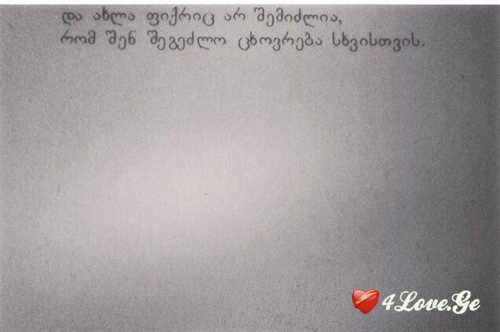 და ახლა ფიქრიც არ შემიძლია,
რომ შენ შეგეძლო ცხოვრება სხვისთვის.
4Love.Ge